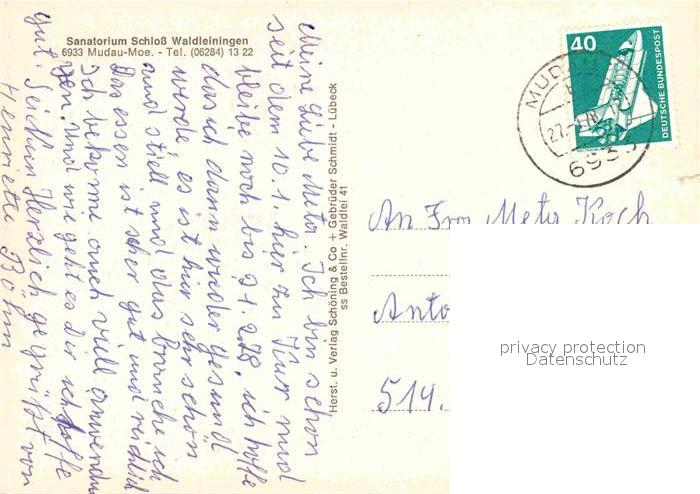 Sanatorium Schloß Waldleiningen
6933 Mudau-Moe. - Tel. (06284) 13 22
Meine liebe Meta. Ich bin schon
seit dem 10.1. hier zur Kur und
bleibe noch bis 21.2.78, ich hoffe
das ich dann wieder gesund
werde, es ist hier sehr schön
und still und das brauche ich
Das essen ist sehr gut und reichlich
Ich bekome auch viell anwendun
gen. Und wie geht es dir ich hoffe
gut. Sei Herzlich gegrüßt von
Henriette Böhm
Herst. u. Verlag Schöning & Co + Gebrüder Schmidt - Lübeck
ss Bestellnr. Waldlei 41
40
DEUTSCHE BUNDESPOST
MUD
27.-1.
693
An Frau Meta Koch
Anto
514.
privacy protection
Datenschutz